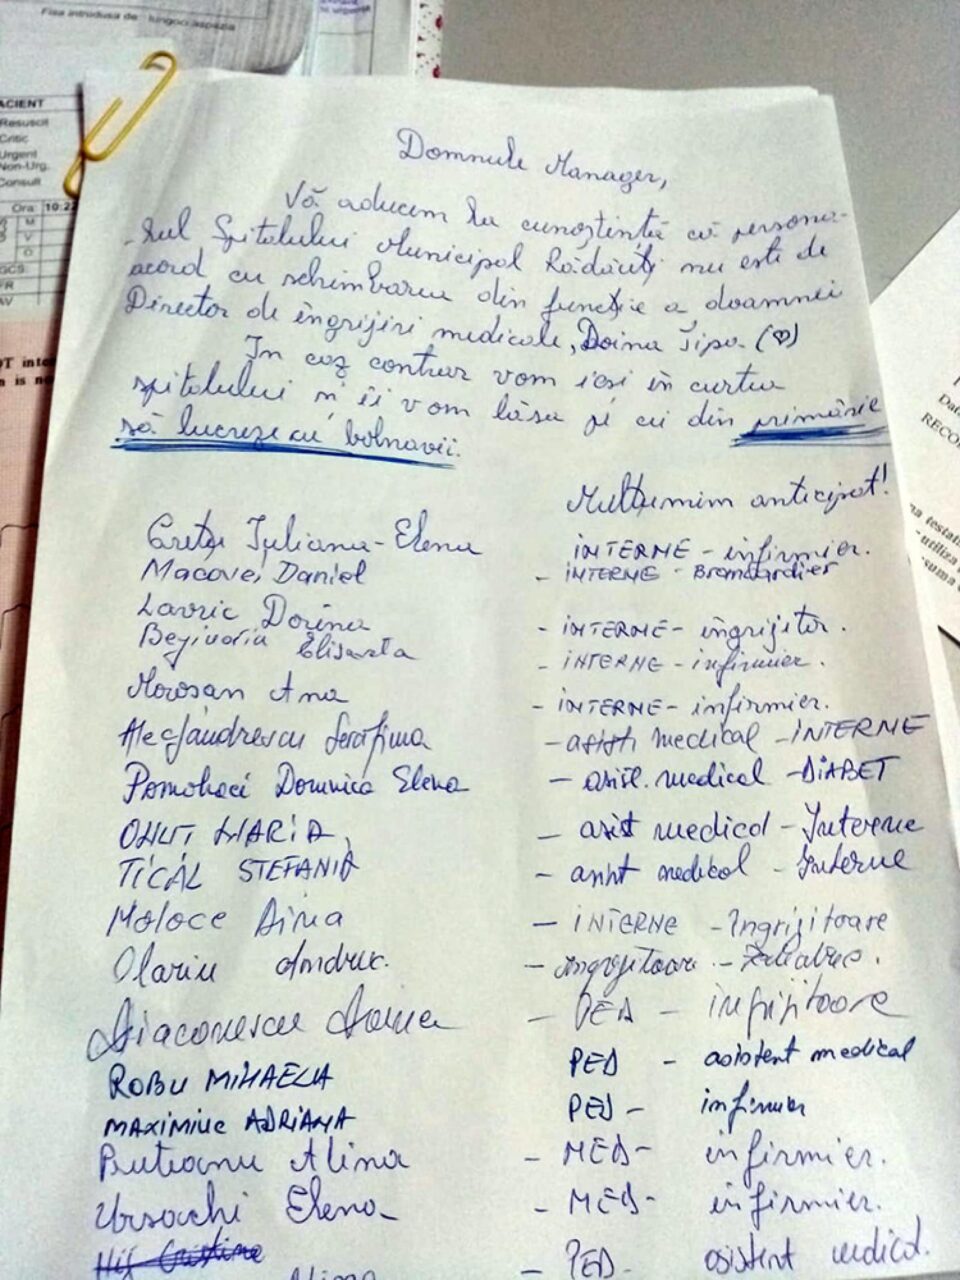 Fisa introdusa de: lungoci aspazia
ACIENT
Resuscit
Critic
Urgent
Non-Urg.
Consult
Ora 10:2
M
V
GCS
AV
Domnule Manager,
Vă aducem la cunoștință că persona-
-lul Spitalului Municipal Rădăuți nu este de
acord cu schimbarea din funcție a doamnei
Director de îngrijiri medicale, Doina Țipo. (♡)
In caz contrar vom ieși în curtea
spitalului și îi vom lăsa pe cei din primărie
să lucreze cu bolnavii.
Mulțumim anticipat!
Iuliana-Elena INTERNE - infirmier.
Macovei Daniel - INTERNE - Brancardier
Lavric Dorina - INTERNE - îngrijitor.
Elisabeta - INTERNE - infirmier.
Morosan Ana - INTERNE - infirmier.
Alecsandrescu Serafima - asist medical - INTERNE
Pomohaci Domnica Elena - asist. medical - DIABET
ONUT MARIA - asist medical - Interne
TICAL STEFANIA - asist medical - Interne
Moloce Dina - INTERNE - Ingrijitoare
Olariu Andruc. - îngrijitoare - Pediatrie.
Diaconescu Doina - PED - ingrijitoare
ROBU MIHAELA PED - asistent medical
MAXIMIUC ADRIANA PED - infirmier
Puteanu Alina - MED - infirmier.
Ursachi Elena - MED - infirmier.
Cristina - PED - asistent medical.
Data
RECO
testati
- utiliza
-suma